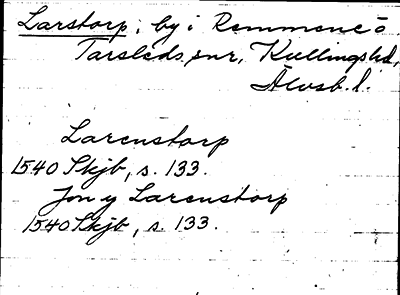 Larstorp, by i Remmene o
Tarsleds snr, Kullings hd,
Älvsb. l.
Larenstorp
1540 Skjb, s. 133.
Jon y Larenstorp
1540 Skjb, s. 133.